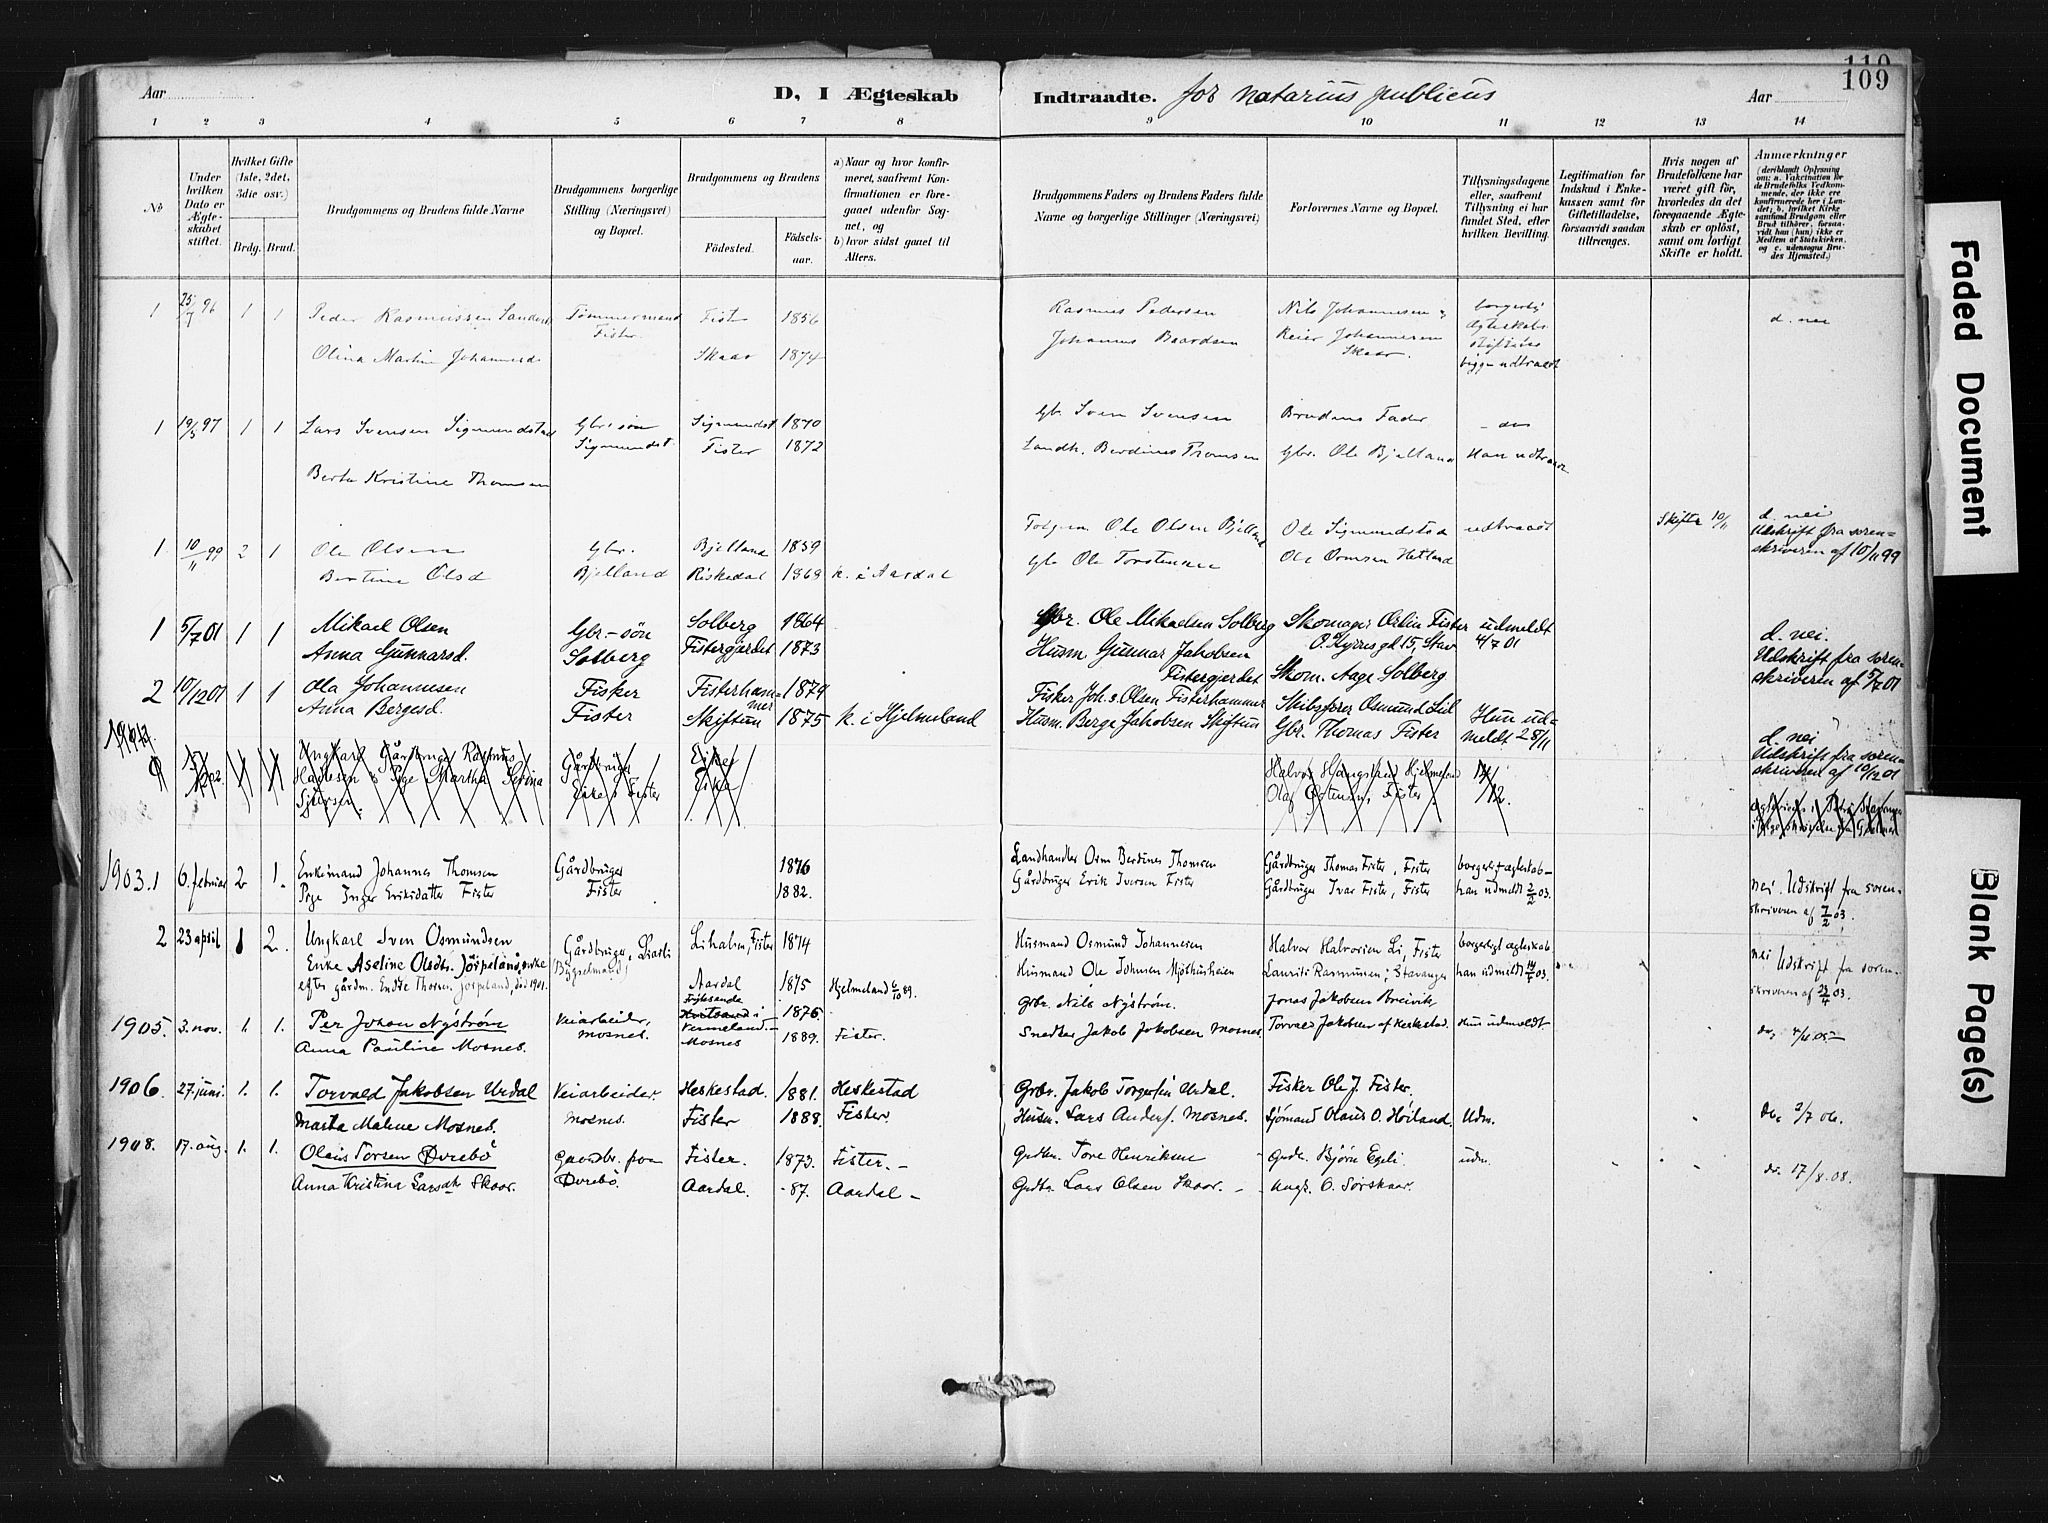 110
109
Aar
D, I Ægteskab
Indtraadte. for notarius publicus
Aar
1 2 3 4 5 6 7 8 9 10 11 12 13 14
№
Under hvilken Dato er Ægteskabet stiftet.
Hvilket Gifte (1ste, 2det, 3die osv.)
Brdg. Brud.
Brudgommens og Brudens fulde Navne
Brudgommens borgerlige Stilling (Næringsvei) og Bopæl.
Brudgommens og Brudens
Fødested.
Fødselsaar.
a) Naar og hvor konfirmeret, saafremt Konfirmationen er foregaaet udenfor Sognet, og
b) hvor sidst gaaet til Alters.
Brudgommens Faders og Brudens Faders fulde Navne og borgerlige Stillinger (Næringsvei)
Forlovernes Navne og Bopæl.
Tillysningsdagene eller, saafremt Tillysning ei har fundet Sted, efter hvilken Bevilling.
Legitimation for Indskud i Enkekassen samt for Giftetilladelse, forsaavidt saadan tiltrænges.
Hvis nogen af Brudefolkene har været gift før, hvorledes da det foregaaende Ægteskab er opløst, samt om lovligt Skifte er holdt.
Anmærkninger
(deriblandt Oplysning om: a. Vakcination for de Brudefolks Vedkommende, der ikke ere konfirmerede her i Landet; b. hvilket Kirkesamfund Brudgom eller Brud tilhører, forsaavidt han (hun) ikke er Medlem af Statskirken, og c. udensogns Brudes Hjemsted.)
1 25/7 96 1 1 Peder Rasmussen Tømmermand Fister 1856 Rasmus Pedersen Nils Johannesen borgerlig d. nei
Fister ægteskabs
Olina Martin Johannesd Skaar 1874 Johannes Baardsen Reier Johannesen Skaar. begge udtraadt
1 19/5 97 1 1 Lars Svensen Sigmundstad Gbr. søn Sigmundst 1870 Gb. Sven Svensen Brudens Fader
Sigmundst. Fister 1872 Landh. Berdines Thomsen Gbr. Ole Bjelland Han udtraadt
Berta Kristine Thomsen
1 10/11 99 2 1 Ole Olsen Gbr. Bjelland 1839 Ole Olsen Bjelland Ole Sigmundstad udtraadt Skifte 10/11 d. nei
Bertine Olsd Bjelland Riskedal 1869 k. i Aardal gb. Ole Torstensen Ole Ormsen Hetland Udskrift fra sorenskriveren af 10/11 99
1 5/7 01 1 1 Mikael Olsen Gbr.-søn Solberg 1864 Gbr. Ole Mikaelsen Solberg Skomager Fister udmeldt d. nei.
Anna Gunnarsd. Solberg Fistergjerdet 1873 Husm. Gunnar Jakobsen Fistergjerdet 15, Stav 4/7 01 Udskrift fra sorenskriveren af 5/7 01
Skom. Aage Solberg
2 10/12 01 1 1 Ola Johannesen Fisker Fisterhammer 1879 Fisker Joh.s Olsen Fisterhammer Skibsfører Osmund Lid Hun udmeldt 28/11 d. nei
Anna Bergesd. Fister Skiftun 1875 k. i Hjelmeland Husm. Berge Jakobsen Skiftun Gbr. Thomas Fister Udskrift fra sorenskriveren af 10/12 01
Ungkarl Gårdbruger Rasmus
Pige Martha Serina
Gårdbruger
Eike, Fister
Eike
Eike
Olaf Fister
1903. 1 6. februar 2 1. Enkemand Johannes Thomsen Gårdbruger 1876 Landhandler Orm Berdines Thomsen Gårdbruger Thomas Fister, Fister borgerligt ægteskab-
Pige Inger Eriksdatter Fister Fister 1882. Gårdbruger Erik Iversen Fister Gårdbruger Ivar Fister, Fister han udmeldt 2/2 03. nei. Udskrift fra sorenskriveren af 7/2 03.
2 23 april 1 2. Ungkarl Sven Osmundsen Gårdbruger, Lihalsen, Fister 1874 Husmand Osmund Johannesen Halvor Halvorsen Li, Fister borgerligt ægteskab nei Udskrift fra sorenskriveren af 23/4 03.
Enke Aseline Olsdtr. Jørpeland, enke (Byggelmand) Aardal 1875 Hjelmeland 6/10 89. Husmand Ole Johnsen Mjølhusheien Laurits Rasmussen, Stavanger han udmeldt 14/4 03.
efter gårdm. Endre Thorsen Jørpeland, død 1901.
1905. 3. nov. 1. 1. Per Johan Nyström Veiarbeider, Vermeland. 1876 Gbr. Nils Nyström. Jonas Jakobsen Breivik
Anna Pauline Mosnes. Mosnes. Mosnes 1889. Fister. Snedker Jakob Jakobsen Mosnes. Torvald Jakobsen af Heskestad. Hun udmeldt do, 4/11 05
1906. 27. juni. 1. 1. Torvald Jakobsen Urdal Veiarbeider. Heskestad. 1881. Heskestad Gbr. Jakob Torgersen Urdal. Fisker Ole J. Fister.
Marta Malene Mosnes. Mosnes. Fister 1888. Fister. Husm. Lars Anders. Mosnes. Sjømand Olaus O. Høiland. Udm. do. 2/7 06.
1908. 17. aug. 1. 1. Olaus Torsen Øvrebö Gaardbr. paa Fister. 1873. Fister. - Grdbr. Tore Henriksen Grdbr. Bjørn Egeli. udm.
Anna Kristina Larsdtr Skaar. Øvrebö. Aardal. - 87. Aardal - Grdbr. Lars Olsen Skaar. - Ungk. O. Sørskaar. do. 17/8. 08.
Faded Document
Blank Page(s)